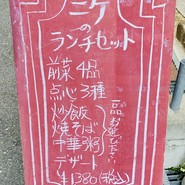 ニケ
の
ランチセット
前菜 4品
点心 3種
炒飯
焼そば
中華粥
一品お選び下さい
デザート
¥1380(税込)